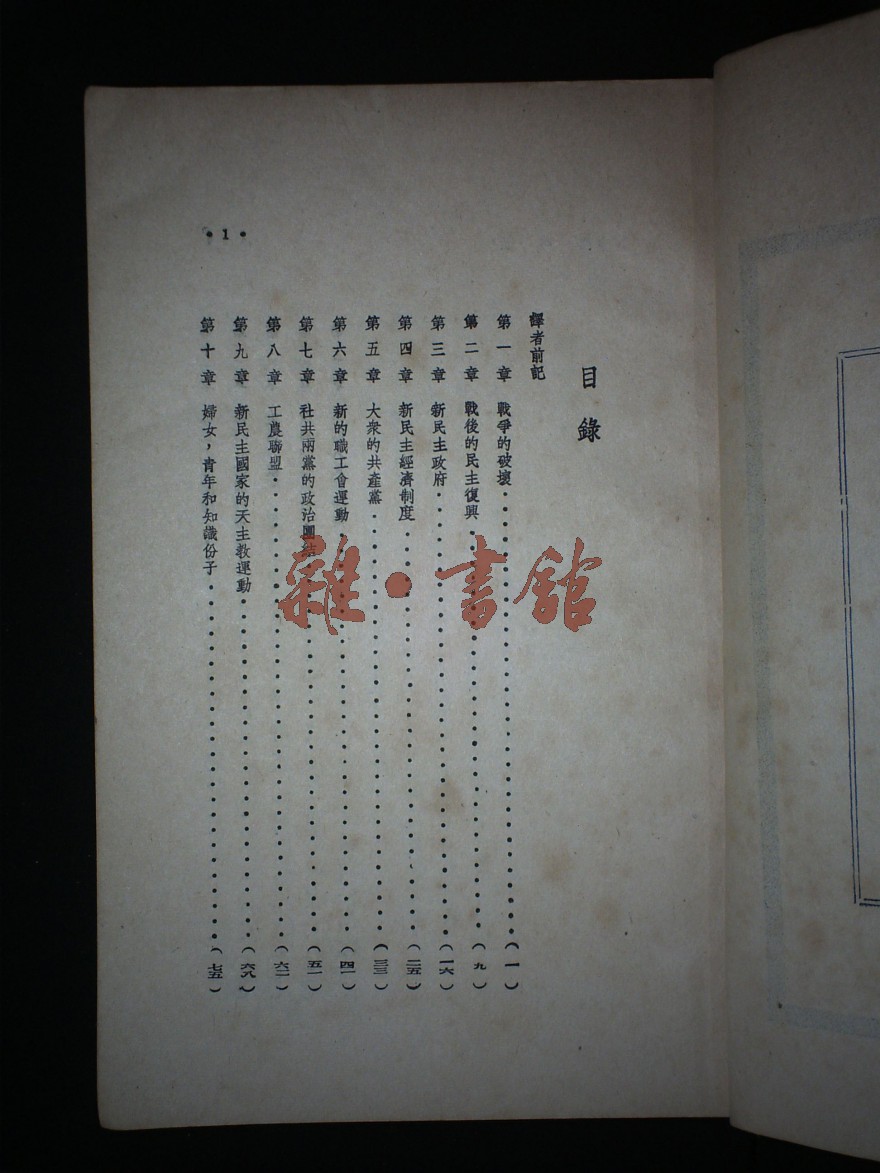 目錄
譯者前記
第一章 戰爭的破壞……(一)
第二章 戰後的民主復興……(九)
第三章 新民主政府……(一六)
第四章 新民主經濟制度……(二五)
第五章 大衆的共產黨……(三三)
第六章 新的職工會運動……(四一)
第七章 社共兩黨的政治團結……(五一)
第八章 工農聯盟……(六二)
第九章 新民主國家的天主教運動……(六八)
第十章 婦女，青年和知識份子……(七五)
•1•
雜•書館